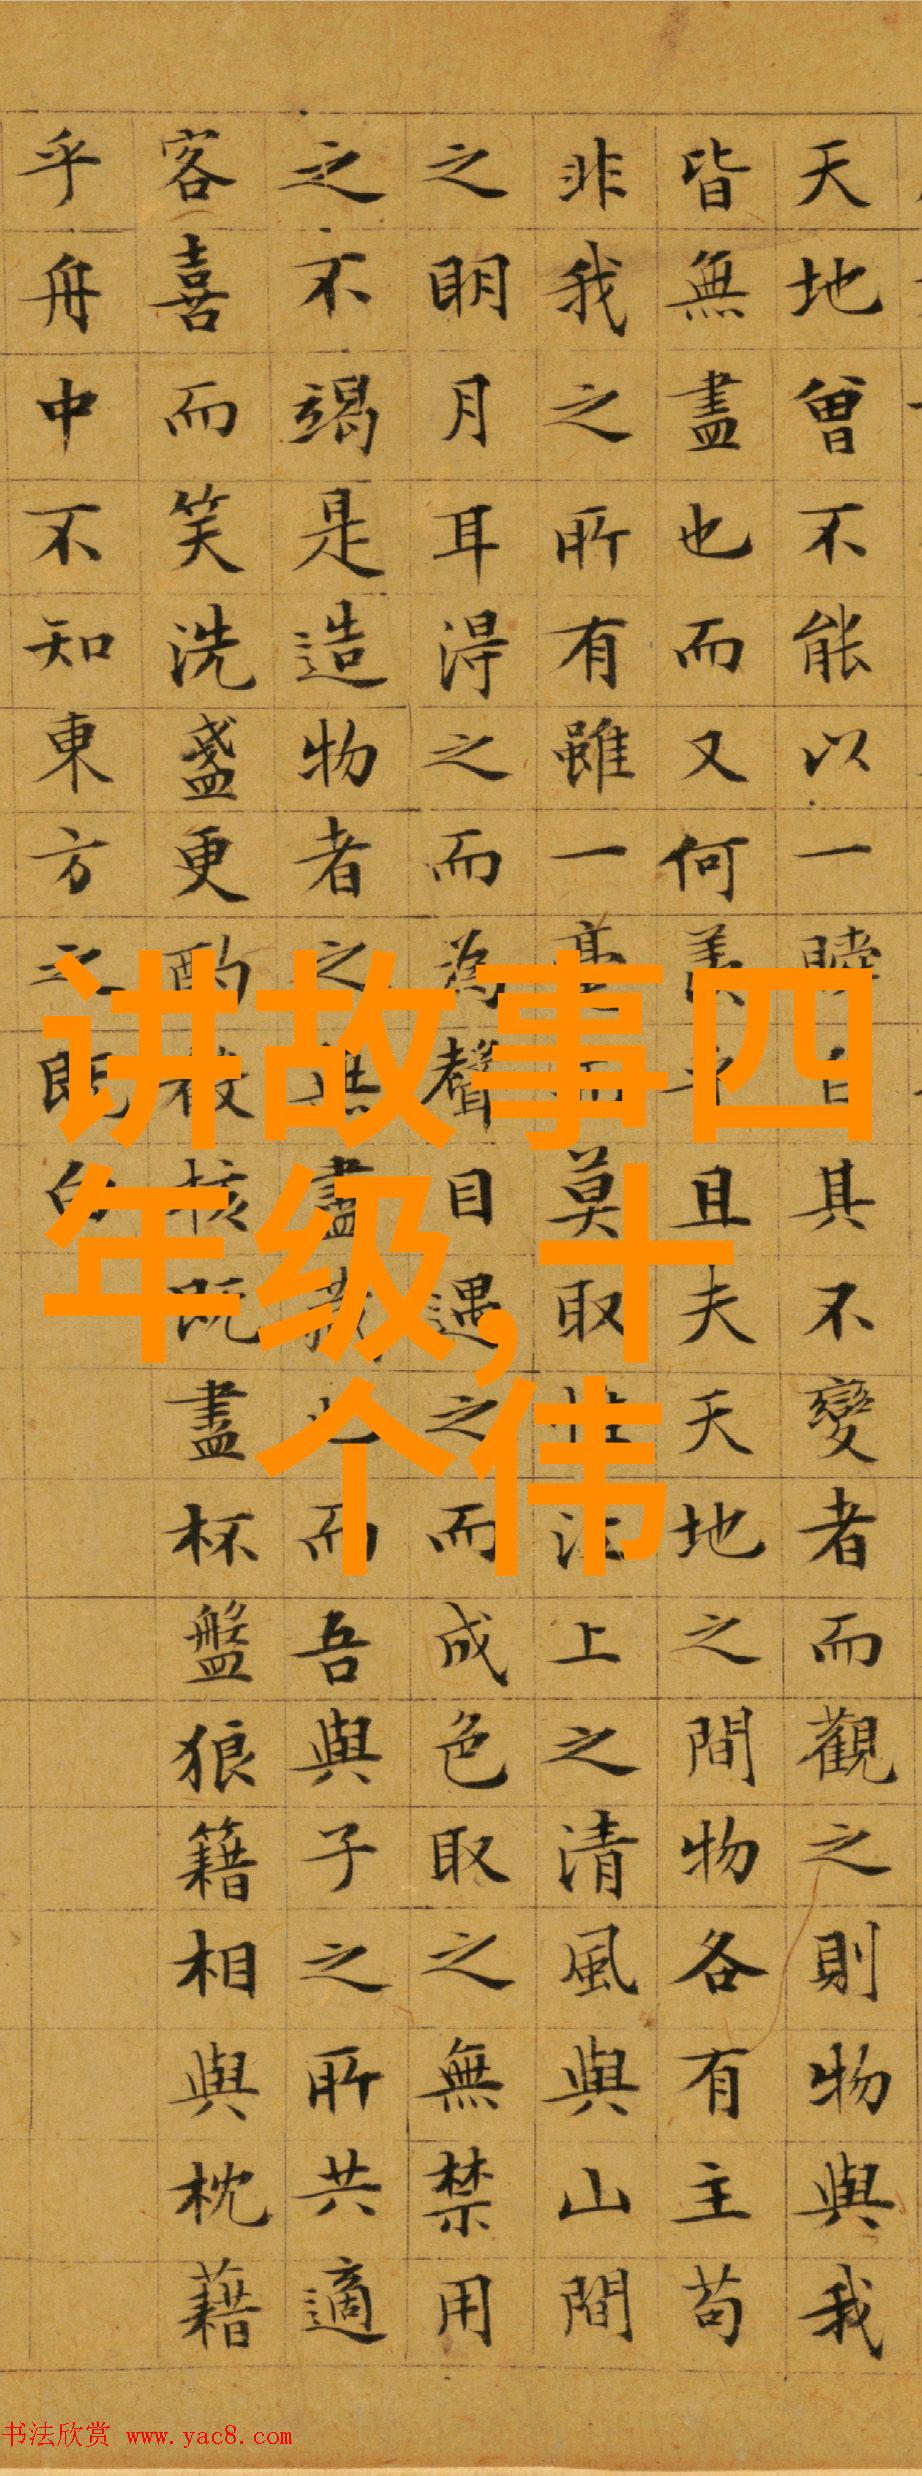 天地曾不能以一瞬自其不變者而觀之則物與我
皆無盡也而又何羨乎且夫天地之間物各有主苟
非我之所有雖一毫而莫取惟江上之清風與山間
之明月耳得之而為聲目遇之而成色取之無禁用
之不竭是造物者之無盡藏也而吾與子之所共適
客喜而笑洗盞更酌肴核既盡杯盤狼籍相與枕藉
乎舟中不知東方之既白
讲故事四
年级,十
个伟
书法欣赏 www.yac8.com